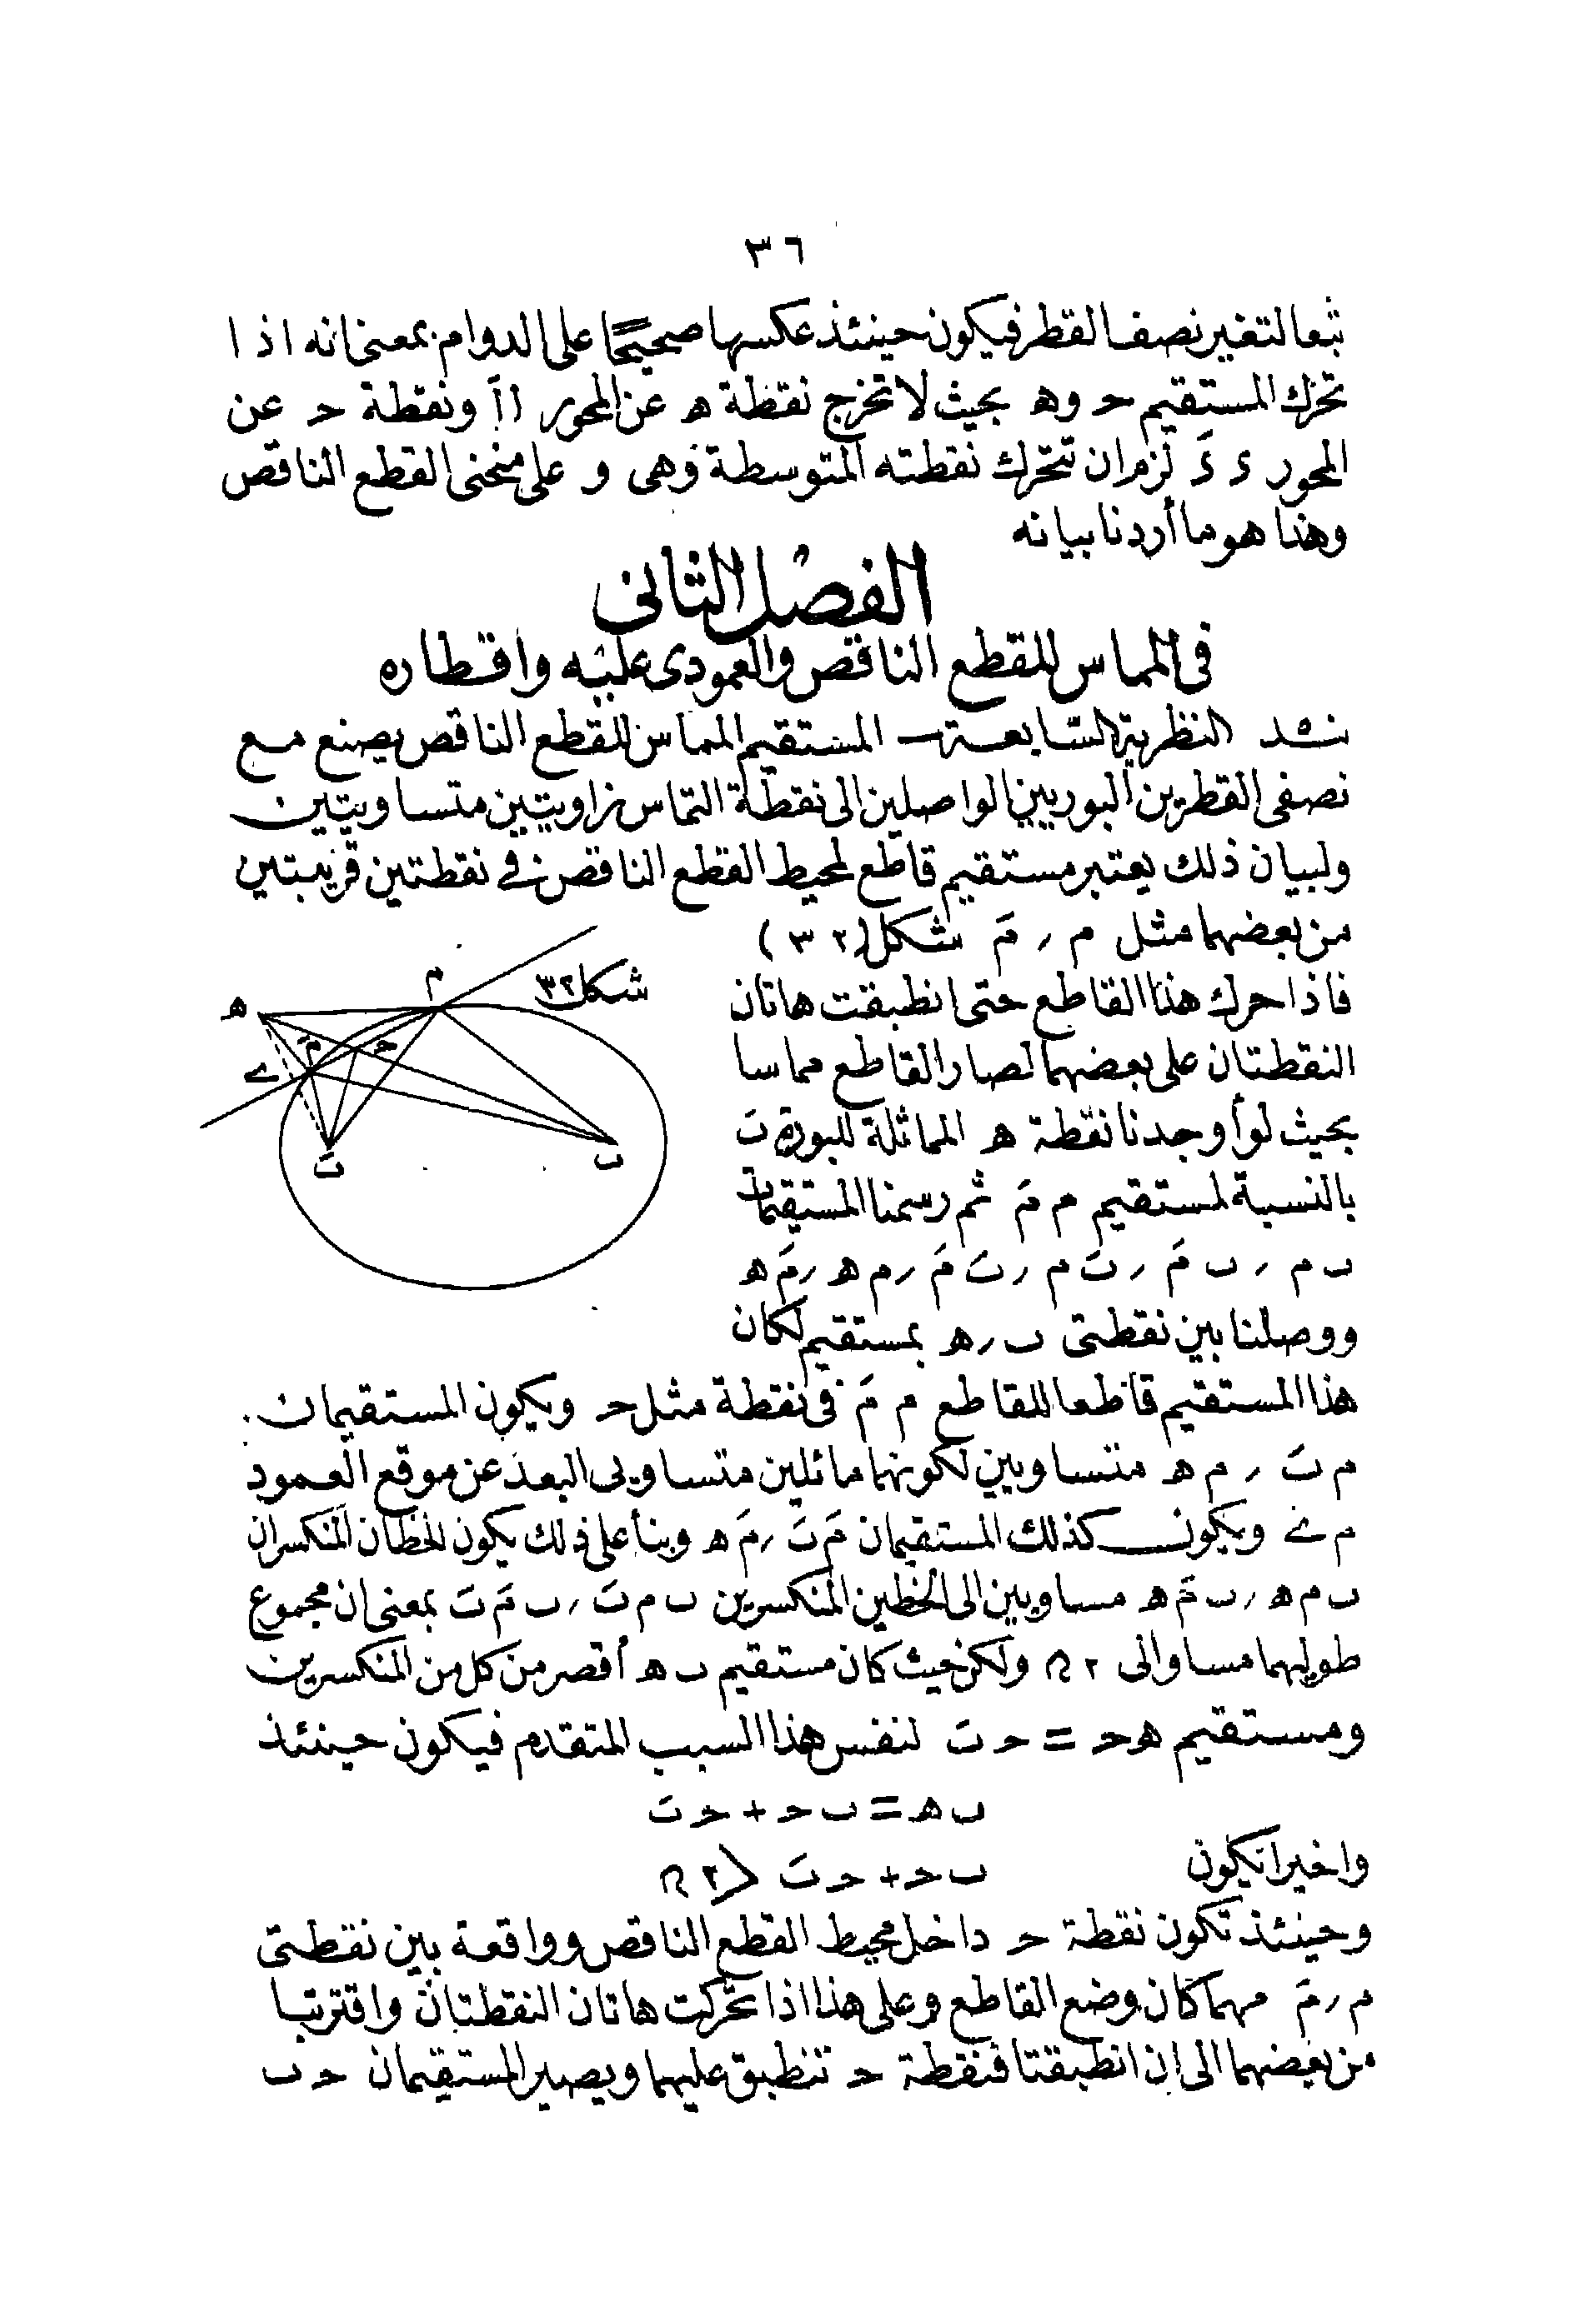 ٣٦
تبعا لتغير نصف القطر فيكون حينئذ عكسها صحيحًا على الدوام بمعنى انه اذا
تحرك المستقيم حـ وهـ بحيث لا تخرج نقطة هـ عن المحور ااَ ونقطة حـ عن
المحور ء ءَ لزم ان تتحرك نقطته المتوسطة وهى و على منحنى القطع الناقص
وهذا هو ما أردنا بيانه
الفصل الثانى
فى المماس للقطع الناقص والعمودى عليه واقطاره
نـ٥ـد النظرية السابعة — المستقيم المماس للقطع الناقص يصنع مع
نصفى القطرين البوريين الواصلين الى نقطة التماس زاويتين متساويتين
ولبيان ذلك يعتبر مستقيم قاطع لمحيط القطع الناقص فى نقطتين قريبتين
من بعضهما مثل م , مَ شكل (٣٢)
فاذا حرك هذا القاطع حتى انطبقت هاتان
النقطتان على بعضهما لصار القاطع مماسا
بحيث لو أوجدنا نقطة هـ المماثلة للبورة ںَ
بالنسبة لمستقيم م مَ ثم رسمنا المستقيمات
ں م , ں مَ , ںَ م , ںَ مَ , م هـ , مَ هـ
ووصلنا بين نقطتى ں , هـ بمستقيم لكان
شكل ٣٢
هـ م مَ حـ ے ںَ ں
هذا المستقيم قاطعا للقاطع م مَ فى نقطة مثل حـ ويكون المستقيمان
م ںَ , م هـ متساويين لكونهما مائلين متساويى البعد عن موقع العمود
م ے ويكون كذلك المستقيمان مَ ںَ , مَ هـ وبنأ على ذلك يكون الخطان المنكسران
ں م هـ , ں مَ هـ مساويين الى الخطين المنكسرين ں م ںَ , ں مَ ںَ بمعنى ان مجموع
طوليهما مساو الى ٢ﻬ ولكن حيث كان مستقيم ں هـ أقصر من كل من المنكسرين
ومستقيم هـ حـ = حـ ںَ لنفس هذا السبب المتقدم فيكون حينئذ
ں هـ = ں حـ + حـ ںَ
واخيرا تكون ں حـ + حـ ںَ < ٢ﻬ
وحينئذ تكون نقطة حـ داخل محيط القطع الناقص وواقعة بين نقطتى
م , مَ مهما كان وضع القاطع وعلى هذا اذا تحركت هاتان النقطتان واقتربتا
من بعضهما الى ان انطبقتا فنقطة حـ تنطبق عليهما ويصير المستقيمان حـ ں